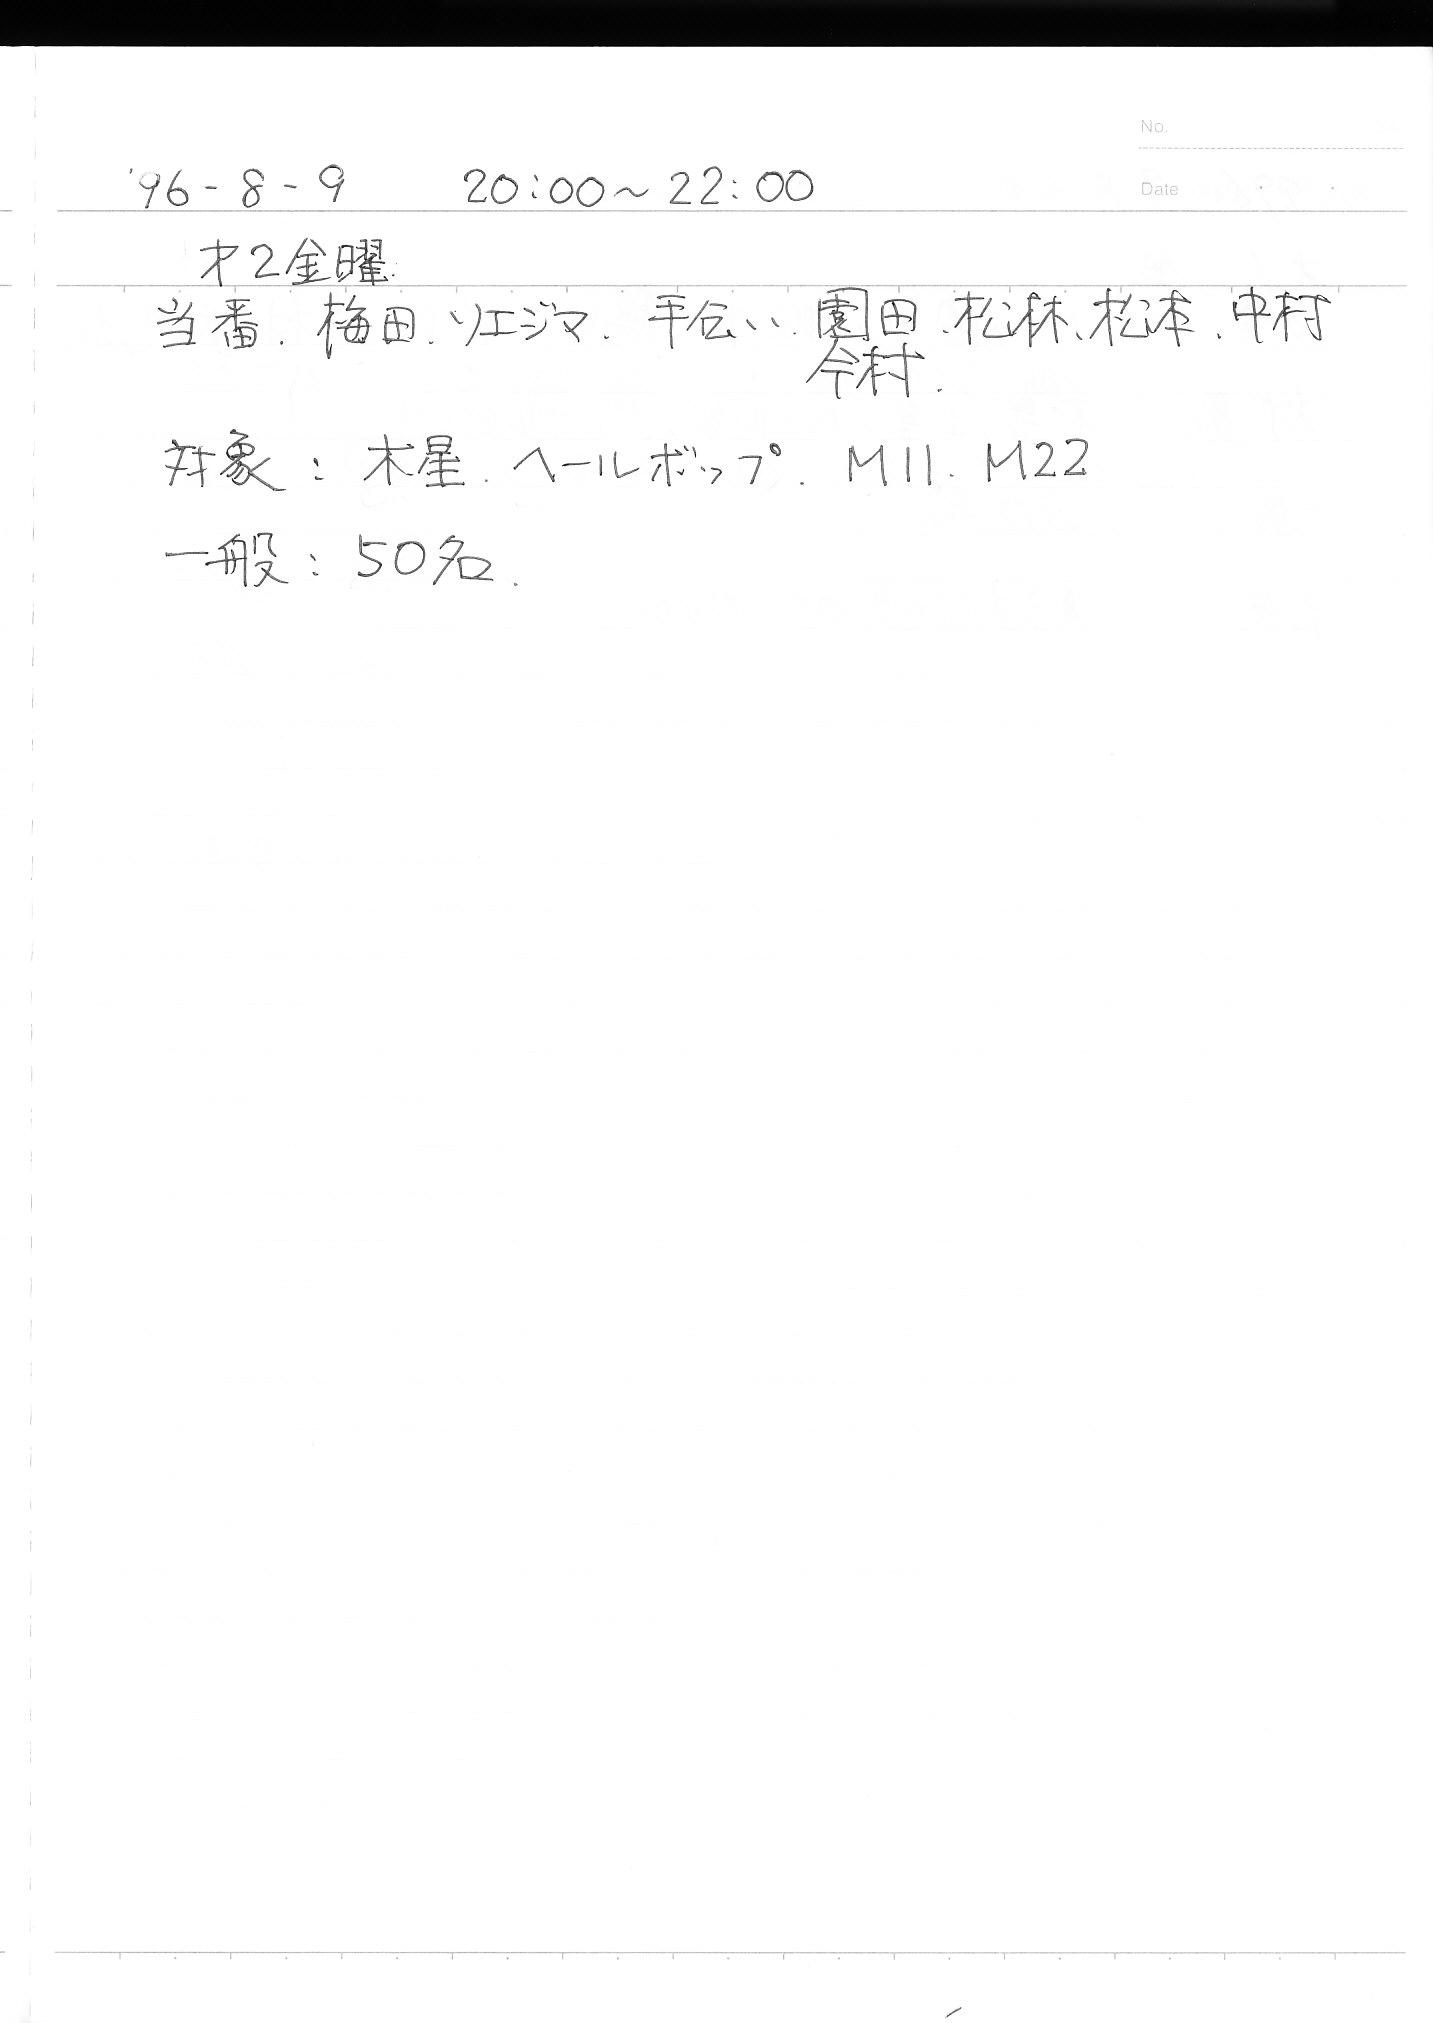 No.
'96-8-9 20:00~22:00
Date
才2金曜
当番. 梅田. ソエジマ. 手伝い. 園田. 松林、松本. 中村
今村.
対象: 木星. ヘールボップ. M11. M22
一般: 50名.